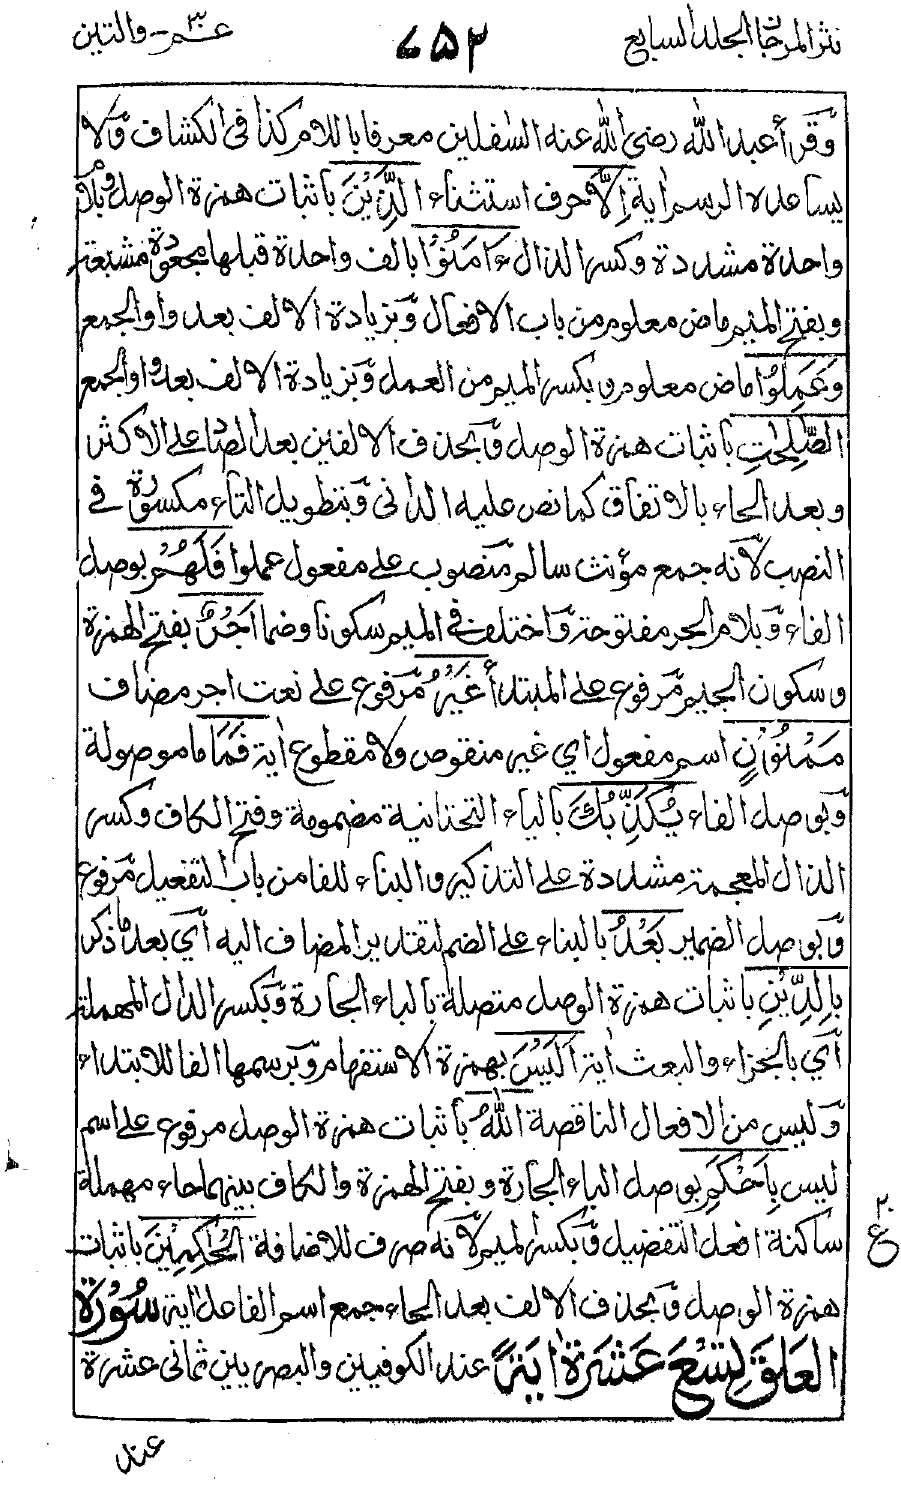 نثر المرجان الجلد السابع ۷۵۲ عم ۳۰ - والتين
وقرأ عبد الله رضي الله عنه السفلين معرفا باللام كذا في الكشاف ولا
يساعده الرسم اية اِلَّا حرف استثناء الَّذِيْنَ باثبات همزة الوصل وبلام
واحدة مشددة وكسر الذال ءَامَنُوْا بالف واحدة قبلها مجعودة مشبعة
وبفتح الميم ماض معلوم من باب الافعال وبزيادة الالف بعد واو الجمع
وَعَمِلُوا ماض معلوم وبكسر الميم من العمل وبزيادة الالف بعد واو الجمع
الصّٰلِحٰتِ باثبات همزة الوصل وبحذف الالفين بعد الصاد على الاكثر
وبعد الحاء بالاتفاق كما نص عليه الداني وبتطويل التاء مكسورة في
النصب لانه جمع مؤنث سالم منصوب على مفعول عملوا فَلَهُمْ بوصل
الفاء وبلام الجر مفتوحة واختلف في الميم سكونا وضما اَجْرٌ بفتح الهمزة
وسكون الجيم مرفوع على المبتدأ غَيْرُ مرفوع على نعت اجر مضاف
مَمْنُوْنٍ اسم مفعول اي غير منقوص ولا مقطوع اية فَمَا ما موصولة
وبوصل الفاء يُكَذِّبُكَ بالياء التحتانية مضمومة وفتح الكاف وكسر
الذال المعجمة مشددة على التذكير والبناء للفا من باب التفعيل مرفوع
وبوصل الضمير بَعْدُ بالبناء على الضم لتقدير المضاف اليه أي بعد ما ذكر
بِالدِّيْنِ باثبات همزة الوصل متصلة بالباء الجارة وبكسر الدال المهملة
أي بالجزاء والبعث اية اَلَيْسَ بهمزة الاستفهام وبرسمها الفا للابتداء
وليس من الافعال الناقصة اللّٰهُ باثبات همزة الوصل مرفوع على اسم
ليس بِاَحْكَمِ بوصل الباء الجارة وبفتح الهمزة والكاف بينهما حاء مهملة
ساكنة افعل التفضيل وبكسر الميم لانه صرف للاضافة الْحٰكِمِيْنَ باثبات
همزة الوصل وبحذف الالف بعد الحاء جمع اسم الفاعل اية سُوْرَةُ
الْعَلَقِ تِسْعَ عَشْرَةَ اٰيَةً عند الكوفيين والبصريين ثماني عشرة
۲۰
ع
عند